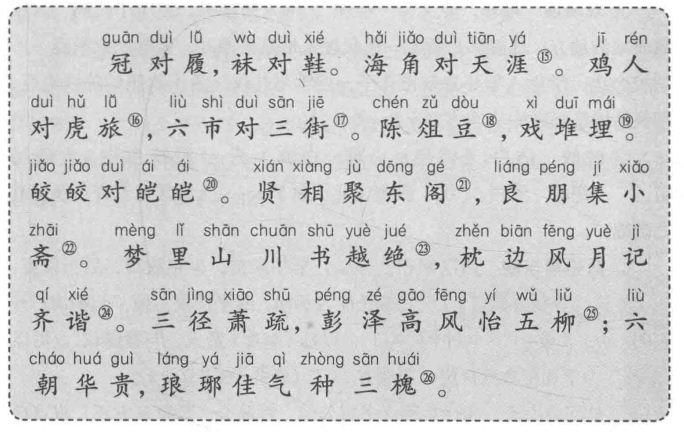 guān duì lǚ wà duì xié hǎi jiǎo duì tiān yá jī rén
冠对履,袜对鞋。海角对天涯⑮。鸡人
duì hǔ lǚ liù shì duì sān jiē chén zǔ dòu xì duī mái
对虎旅⑯,六市对三街⑰。陈俎豆⑱,戏堆埋⑲。
jiǎo jiǎo duì ái ái xián xiàng jù dōng gé liáng péng jí xiǎo
皎皎对皑皑⑳。贤相聚东阁㉑,良朋集小
zhāi mèng lǐ shān chuān shū yuè jué zhěn biān fēng yuè jì
斋㉒。梦里山川书越绝㉓,枕边风月记
qí xié sān jìng xiāo shū péng zé gāo fēng yí wǔ liǔ liù
齐谐㉔。三径萧疏,彭泽高风怡五柳㉕;六
cháo huá guì láng yá jiā qì zhòng sān huái
朝华贵,琅琊佳气种三槐㉖。